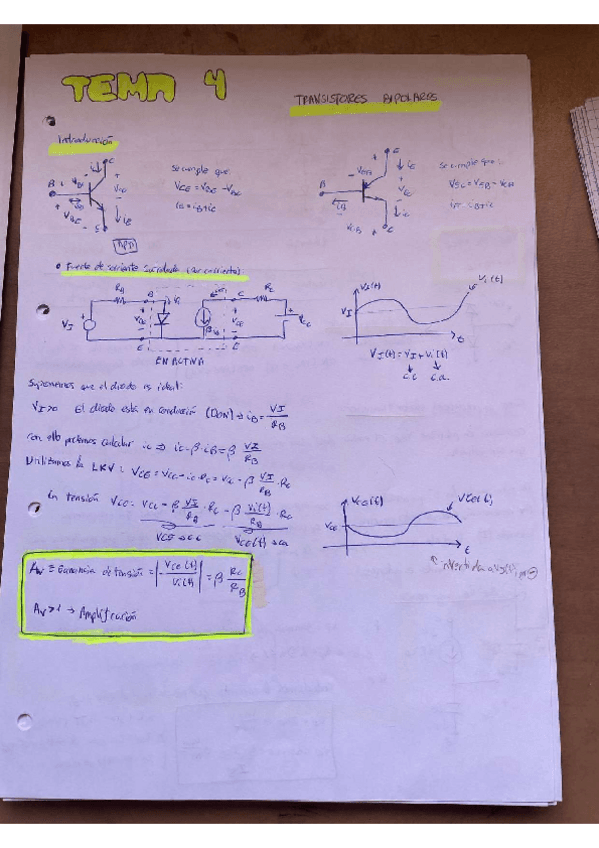 TEMA 4
TRANSISTORES BIPOLARES
Introducción
Se cumple que
VCE = VBE - VBC
iE = iB + iC
NPN
Se cumple que:
VEC = VEB - VCB
iE = iB + iC
Fuente de corriente
EN ACTIVA
Vi(t)
VI
t
VI(t) = VI + Vi(t)
c.c c.a.
Suponemos que el diodo es ideal:
VI>0 El diodo está en conducción (DON) → iB = VI/RB
con ello podemos calcular iC ⇒ iC = β·iB = β VI/RB
Utilizamos la LKV: VCE = VCC - iC·RC = VCC - β VI/RB · RC
En tensión VCE = VCC - β VI/RB · RC - β Vi(t)/RB · RC
VCE → cc VCE(t) → ca
VCE(t)
VCE
t
AV ≡ Ganancia de tensión = |- VCE(t)/Vi(t)| = β RC/RB
AV>1 → Amplificación